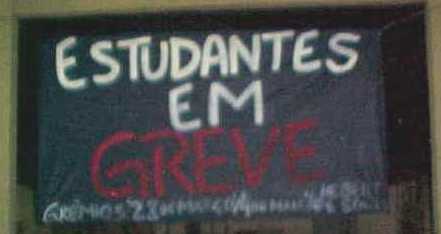 ESTUDANTES
EM
GREVE
GRÊMIOS 28 DE MARÇO